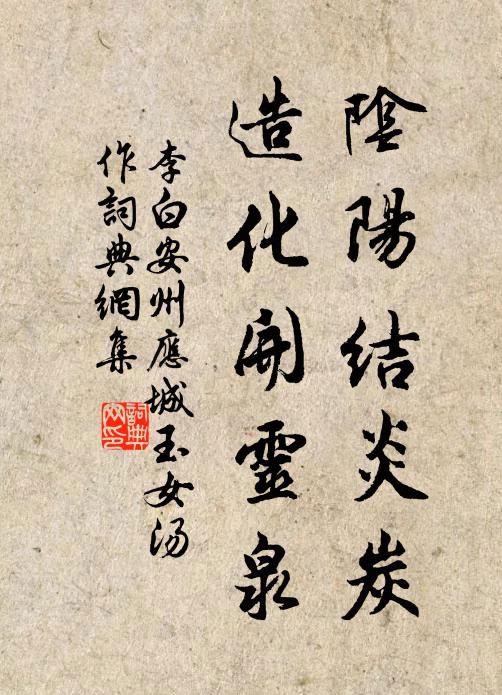 陰陽結炎炭
造化開靈泉
李白安州應城玉女湯
作詞典網集
詞典網印